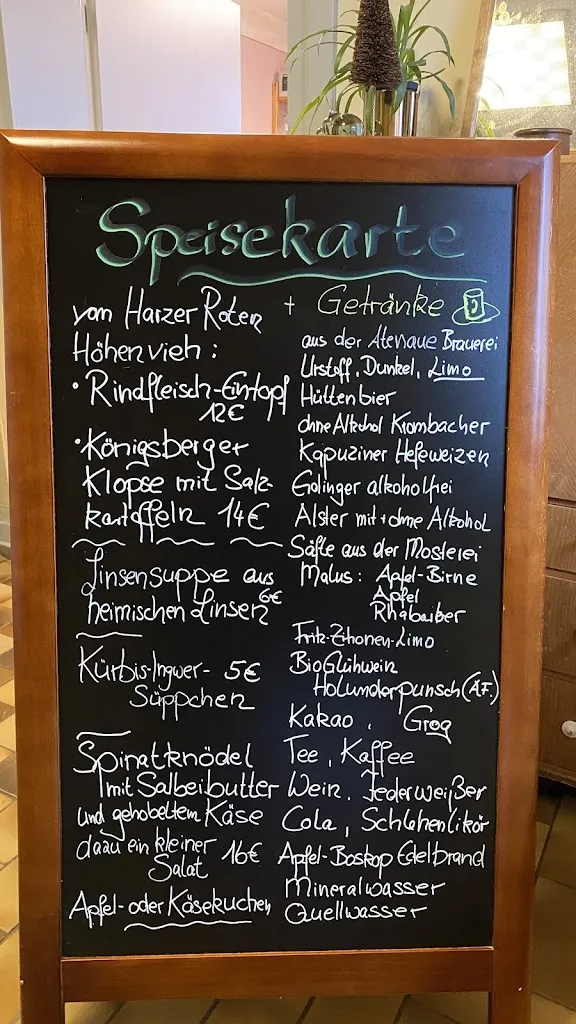 Speisekarte
vom Harzer Roten
Höhenvieh :
• Rindfleisch-Eintopf
12€
• Königsberger
Klopse mit Salz-
kartoffeln 14€
Linsensuppe aus
heimischen Linsen 6€
Kürbis-Ingwer- 5€
Süppchen
Spinatknödel
mit Salbeibutter
und gehobeltem Käse
dazu ein kleiner
Salat 16€
Apfel- oder Käsekuchen
+ Getränke
aus der Altenauer Brauerei
Urstoff, Dunkel, Limo
Hüttenbier
ohne Alkohol Krombacher
Kapuziner Hefeweizen
alkoholfrei
Alster mit + ohne Alkohol
Säfte aus der Mosterei
Malus : Apfel-Birne
Apfel
Rhabarber
Fritz-Zitronen-Limo
BioGlühwein
Holunderpunsch (A.F.)
Kakao, Grog
Tee, Kaffee
Wein, Federweißer
Cola, Schlehenlikör
Apfel-Boskop Edelbrand
Mineralwasser
Quellwasser